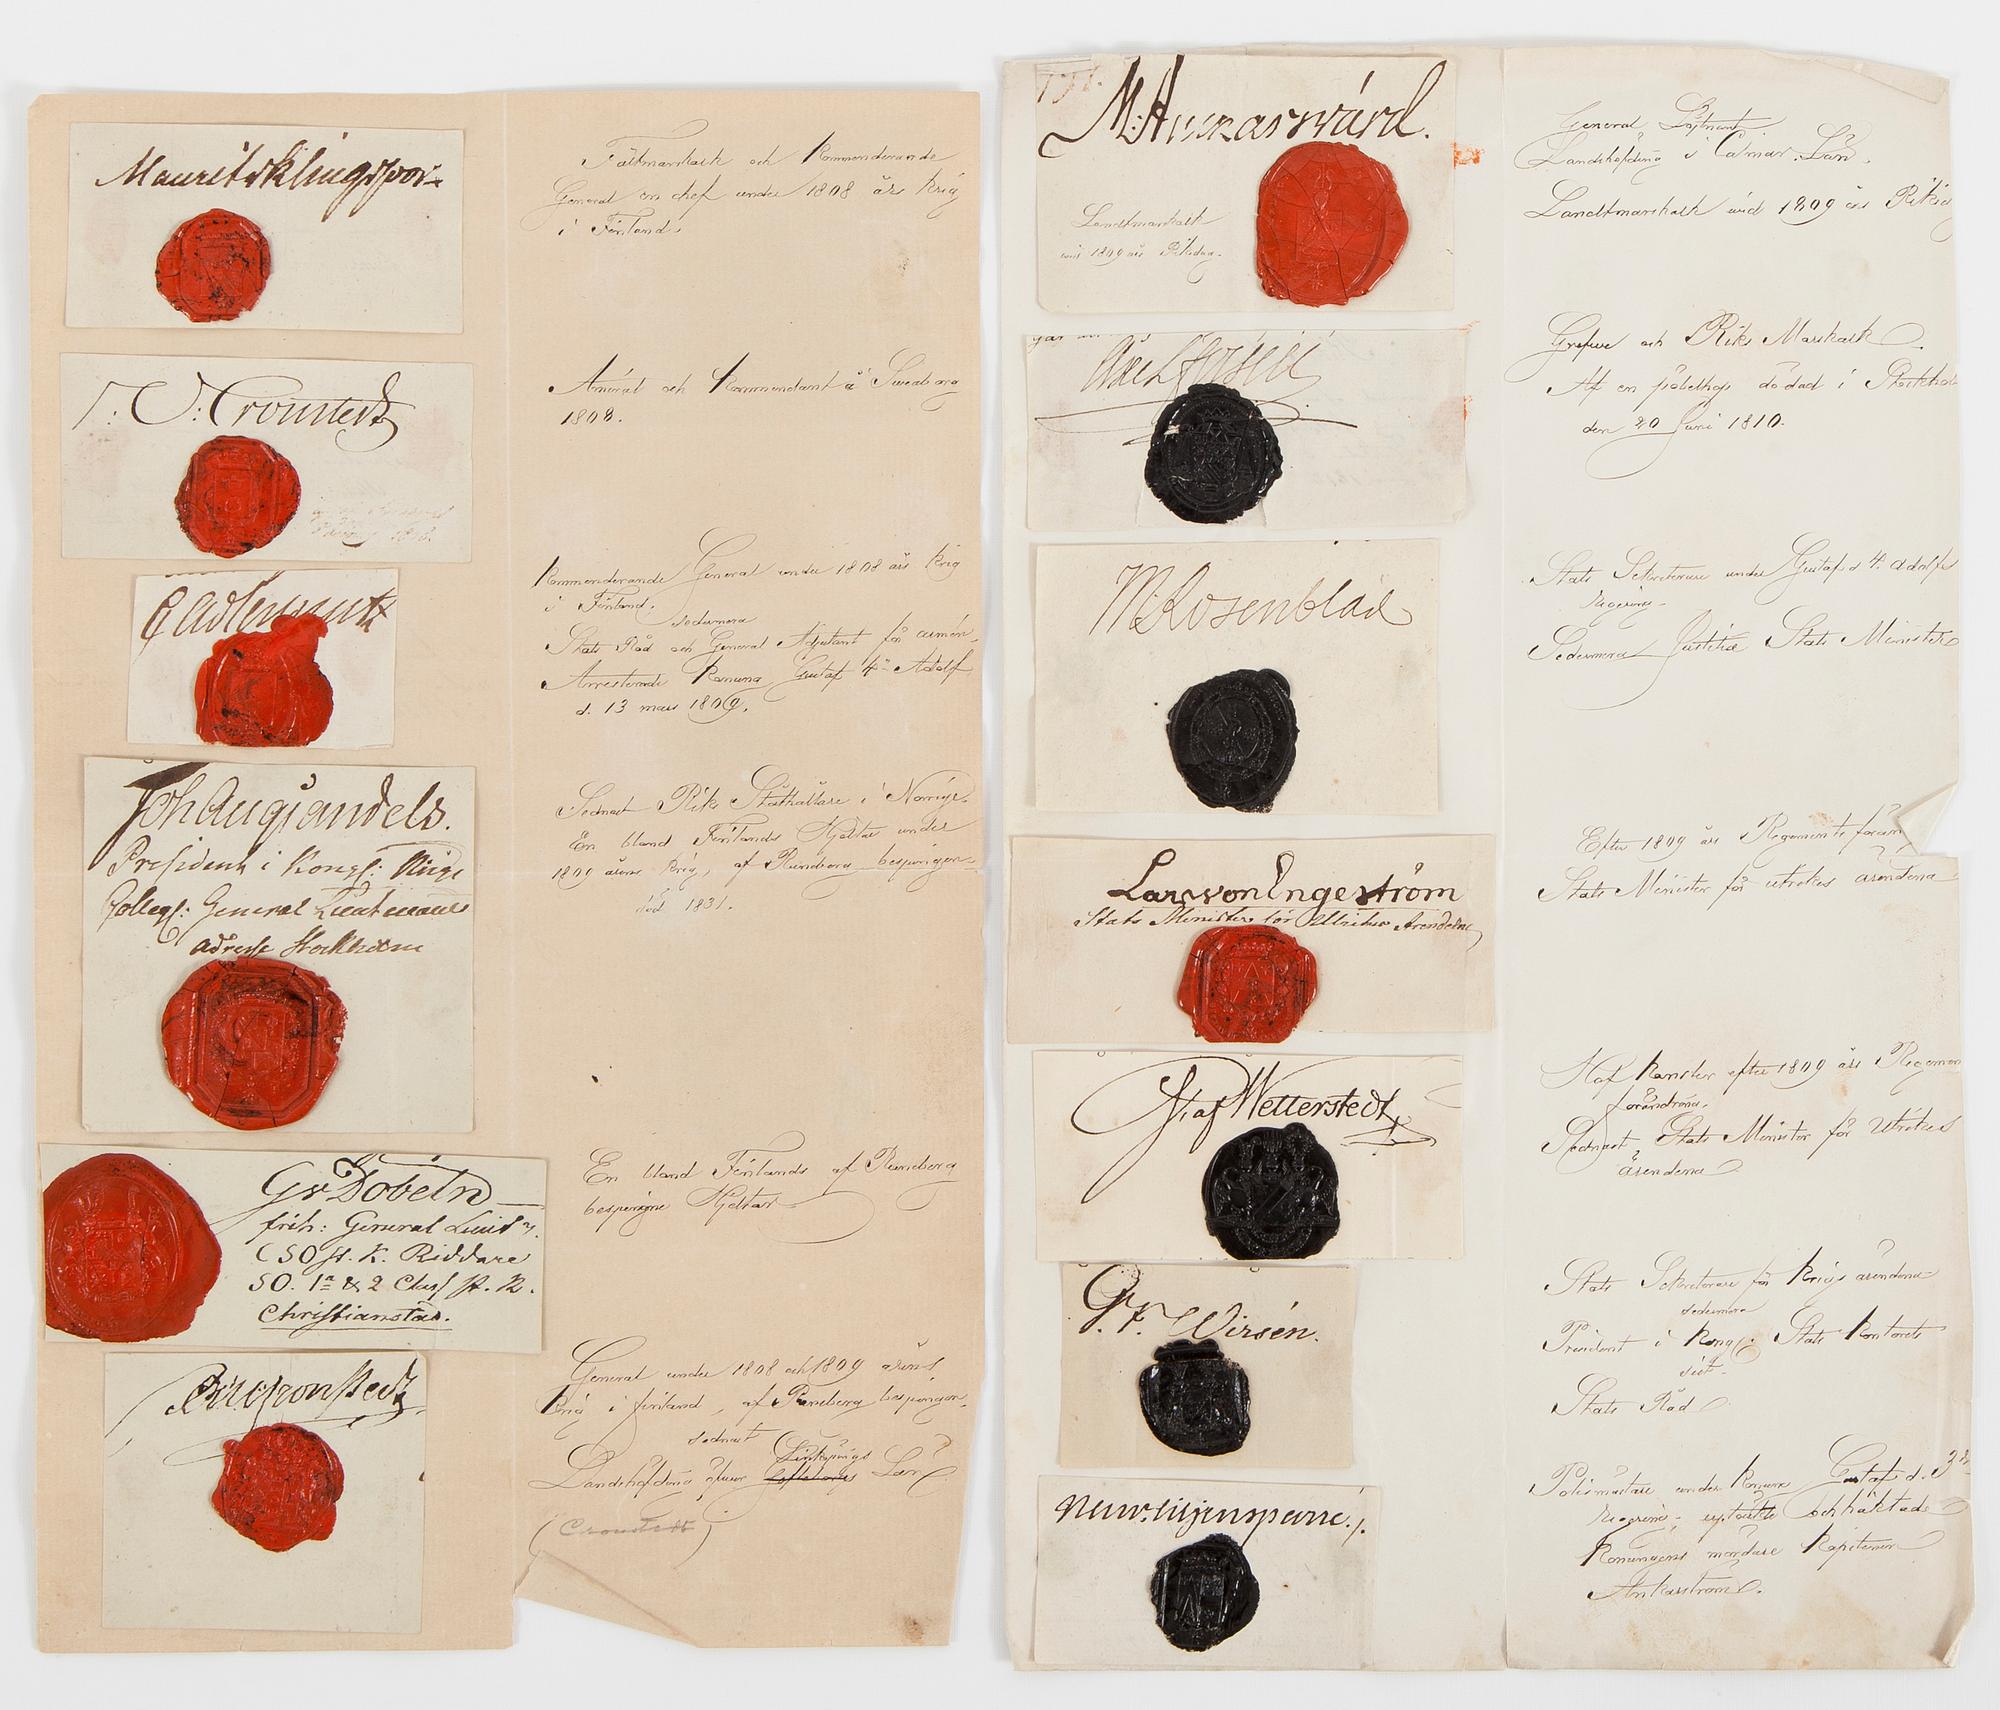 Mauritz Klingspor
Fältmarskalk och Kommenderande
General en chef under 1808 års krig
i Finland.
C. O. Cronstedt
Amiral och Kommendant å Sweaborg
1808.
Adlercreutz
Kommenderande General under 1808 års krig
i Finland.
sedermera
Stats Råd och General Adjutant för armén.
Arresterade Konung Gustaf 4de Adolf
d. 13 mars 1809.
Joh Aug Sandels.
President i Kongl: Krigs
Collegi: General Lieutenant
adresse Stockholm
Sednast Riks Ståthållare i Norrige.
En bland Finlands Hjeltar under
1809 årens krig, af Runeberg besjungen
död 1831.
G v Döbeln
frih: General Lieut
CSO st. K. Riddare
SO. 1a & 2 Class st. K.
Christianstad.
En bland Finlands af Runeberg
besjungne Hjeltar
Cronstedt
General under 1808 och 1809 årens
krig i finland, af Runeberg besjungen.
sednast
Linköpings
Landshöfding öfwer Län
(Cronstedt)
M: Anckarswärd.
Landtmarskalk
wid 1809 års Riksdag.
General Löjtnant
Landshöfding i Calmar Län.
Landtmarskalk wid 1809 års Riksdag
Axel Fersen
Grefwe och Riks Marskalk.
Af en pöbelhop dödad i Stockholm
den 20 Juni 1810.
M Rosenblad
Stats Sekreterare under Gustaf d 4. Adolfs
Regering
Sedermera Justitiæ Stats Minister
Lars von Engeström
Stats Minister för Utrikes Ärendena
Efter 1809 års Regements förän
Stats Minister för utrikes ärendena
G: af Wetterstedt
Hof Kansler efter 1809 års Regemen
förändring.
Sednast Stats Minister för Utrikes
ärendena
C. F. Wirsén.
Stats Sekreterare för Krigs ärendena
sedermera
President i Kongl: Stats Kontoret
sist
Stats Råd
Liljensparre.
Polismästare under Konung Gustaf d. 3
Regering, upptäckte och häktade
Konungens mördare Kapitenen
Ankarström.